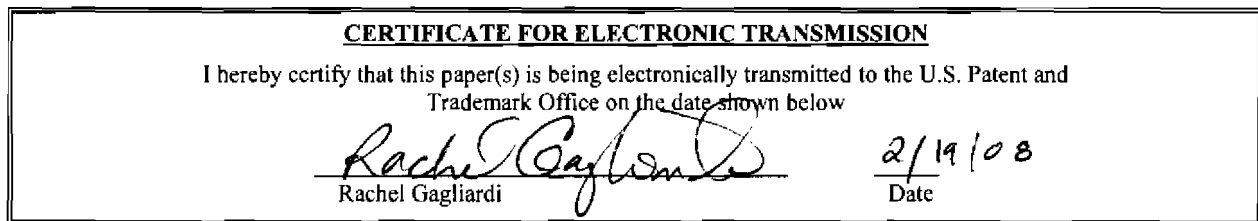 CERTIFICATE FOR ELECTRONIC TRANSMISSION
I hereby certify that this paper(s) is being electronically transmitted to the U.S. Patent and
Trademark Office on the date shown below
Rachel Gagliardi 2/19/08
Rachel Gagliardi Date